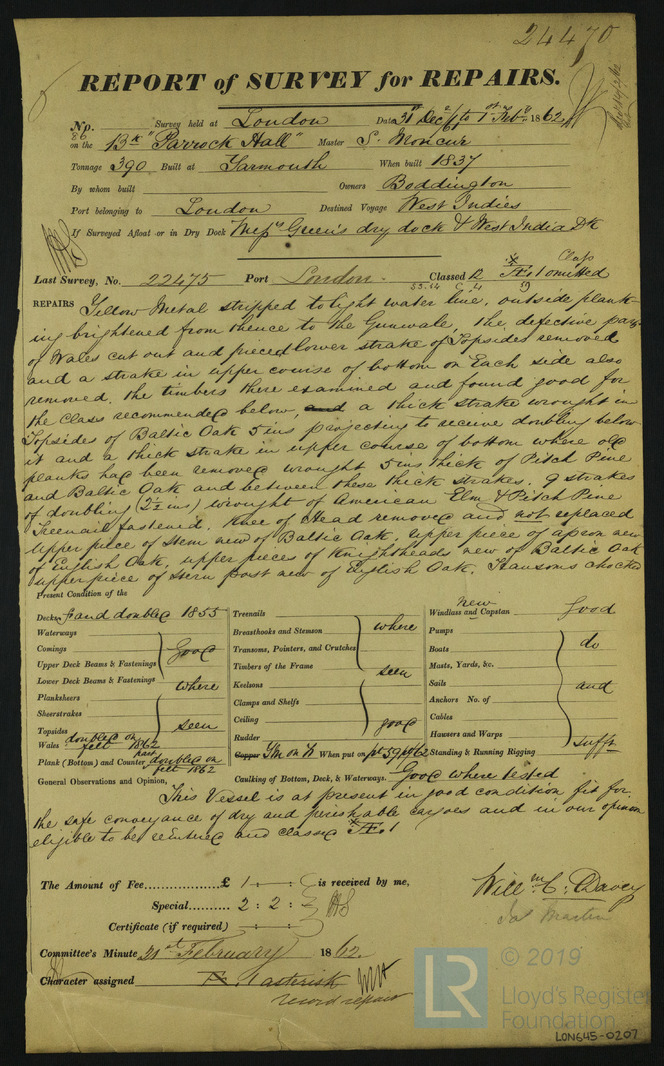 24470
REPORT of SURVEY for REPAIRS.
No. Survey held at London Date 31st Decr/61 to 1st Febry 1862
86
on the Bk "Parrock Hall" Master S. Moncur
Tonnage 390 Built at Yarmouth When built 1837
By whom built Owners Boddington
Port belonging to London Destined Voyage West Indies
If Surveyed Afloat or in Dry Dock Messrs Green's dry dock & West India Dk
Last Survey, No. 22475 Port London. Classed Æ 1 omitted
Class
53.14
REPAIRS Yellow Metal stripped to light water line, outside plank-
ing brightened from thence to the Gunwale, the defective parts
of Wales cut out and pieced lower strake of Topsides removed
and a strake in upper course of bottom on Each side also
removed, the timbers there examined and found good for
the Class recommended below, and a thick strake wrought in
Topsides of Baltic Oak 5 ins projecting to receive doubling below
it and a thick strake in upper course of bottom where old
planks had been removed wrought 5 ins thick of Pitch Pine
and Baltic Oak and between these thick strakes. 9 strakes
of doubling (2½ ins) wrought of American Elm & Pitch Pine
Treenail fastened. Knee of Head removed and not replaced
Upper piece of Stem new of Baltic Oak, upper piece of apron new
of English Oak, upper pieces of Knightheads new of Baltic Oak
upper piece of Stern post new of English Oak. Transoms chocked
Present Condition of the
Decks, and doubled 1855
Waterways
Comings
Upper Deck Beams & Fastenings
Lower Deck Beams & Fastenings
Planksheers
Sheerstrakes
Topsides
Good
where
seen
Wales doubled on felt 1862
Plank (Bottom) and Counter part doubled on felt 1862
Treenails
Breasthooks and Stemson
Transoms, Pointers, and Crutches
Timbers of the Frame
Keelsons
Clamps and Shelfs
Ceiling
Rudder
where
seen
good
Copper YM on When put on pt 59 pt 62
New
Windlass and Capstan good
Pumps
Boats
Masts, Yards, &c.
Sails
Anchors No. of
Cables
Hawsers and Warps
Standing & Running Rigging
do
and
sufft
General Observations and Opinion, Caulking of Bottom, Deck, & Waterways. Good where tested
This Vessel is at present in good condition fit for
the safe conveyance of dry and perishable cargoes and in our opinion
eligible to be reentered and classed Æ 1
The Amount of Fee £ 1 : — : is received by me,
Special 2 : 2 :
Certificate (if required) — : — :
Willm C. Davey
Jas Martin
Committee's Minute 21st February 1862.
Character assigned Æ 1 asterisk
record repair
LR
© 2019
Lloyd's Register
Foundation
LON645-0207